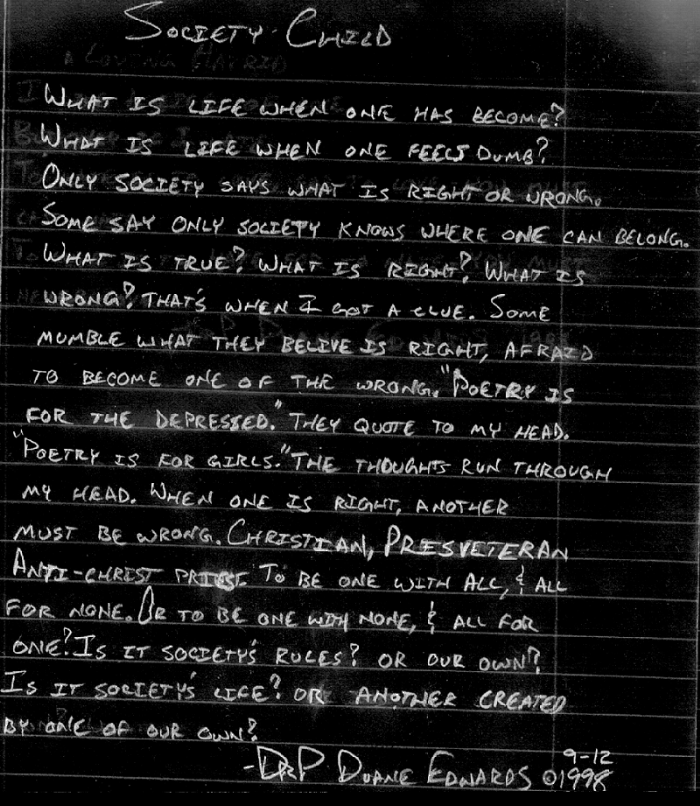 SOCIETY CHILD
WHAT IS LIFE WHEN ONE HAS BECOME?
WHAT IS LIFE WHEN ONE FEELS DUMB?
ONLY SOCIETY SAYS WHAT IS RIGHT OR WRONG.
SOME SAY ONLY SOCIETY KNOWS WHERE ONE CAN BELONG.
WHAT IS TRUE? WHAT IS RIGHT? WHAT IS
WRONG? THAT'S WHEN I GOT A CLUE. SOME
MUMBLE WHAT THEY BELIVE IS RIGHT, AFRAID
TO BECOME ONE OF THE WRONG. "POETRY IS
FOR THE DEPRESSED." THEY QUOTE TO MY HEAD.
"POETRY IS FOR GIRLS." THE THOUGHTS RUN THROUGH
MY HEAD. WHEN ONE IS RIGHT, ANOTHER
MUST BE WRONG. CHRISTIAN, PRESVETERAN
ANTI-CHRIST PRIEST. TO BE ONE WITH ALL, & ALL
FOR NONE. OR TO BE ONE WITH NONE, & ALL FOR
ONE? IS IT SOCIETY'S RULES? OR OUR OWN?
IS IT SOCIETY'S LIFE? OR ANOTHER CREATED
BY ONE OF OUR OWN?
9-12
-DRP DUANE EDWARDS ©1998